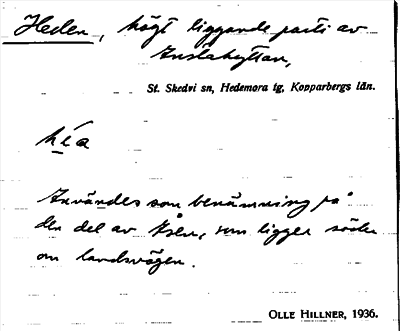 Heden, högt liggande parti av
Instahyttan,
St. Skedvi sn, Hedemora tg, Kopparbergs län.
héa
Användes som benämning på
den del av Åsen, som ligger söder
om landsvägen.
OLLE HILLNER, 1936.